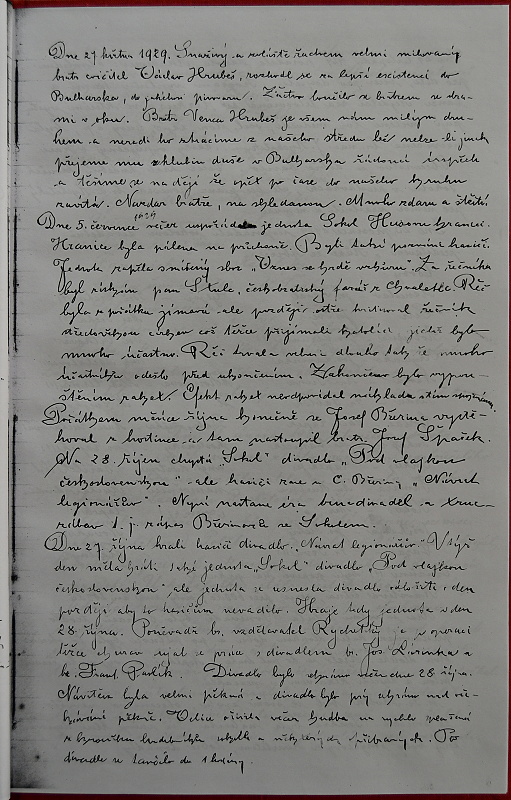 Dne 27 května 1929. Snaživý a zvláště žactvem velmi milovaný
bratr cvičitel Václav Hrubeš, rozhodl se za lepší existencí do
Bulharska, do pivovaru. Žactvo loučilo s bratrem se slza-
mi v oku. Bratr Venca Hrubeš je všem nám milým dru-
hem a neradi ho ztrácíme z našeho středu leč nelze-li jinak
přejeme mu z hlubin duše v Bulharsku žádoucí úspěch
a těšíme se nadějí že opět po čase do našeho kruhu
zavítá. Nazdar bratře, na shledanou. Mnoho zdaru a štěstí
Dne 5. července 1929 večer uspořádala jednota Sokol Husovu hranici.
Hranice byla pálena na příchoně. Byli také pozváni hasiči.
Jednota zapěla smuteční sbor „Vznes se hrdě vzhůru“. Za řečníka
byl získán pan Štule, českobratrský farář z Chvaletic. Řeč
byla z počátku zajímavá ale později ostře kritisoval řečník
středověkou církev což těžce přijímali katolíci jichž bylo
mnoho účastno. Řeč trvala velmi dlouho tak že mnoho
účastníků odešlo před ukončením. Zakončeno bylo vypou-
štěním raket. Efekt raket neodpovídal nákladu s tím spojenému.
Počátkem měsíce října konečně se Josef Bureš vystě-
hoval z hostince a tam nastoupil bratr Josef Špaček.
Na 28. říjen chystá „Sokol“ divadlo „Pod vlajkou
československou“ ale hasiči zase u C. Bureše „Návrat
legionářův“. Nyní nastane éra divadel a
t. j. zápas s Sokolem.
Dne 27. října hráli hasiči divadlo „Návrat legionářův“. V týž
den měla hráti také jednota „Sokol“ divadlo „Pod vlajkou
československou“ ale jednota se usnesla divadlo odložiti o den
později aby to hasičům nevadilo. Hraje tedy jednota v den
28. října. Poněvadž br. vzdělavatel Rychetský je v operaci
těžce churav ujal se práce s divadlem br. Jos. a
br. Frant. Pavlík. Divadlo bylo sehráno večer dne 28. října.
Návštěva byla velmi pěkná a divadlo bylo prý sehráno nad oče-
kávání pěkně. Velice oživila večer hudba na rychlo
z hudebního a některých . Po
divadle se tančilo do 1 hodiny.